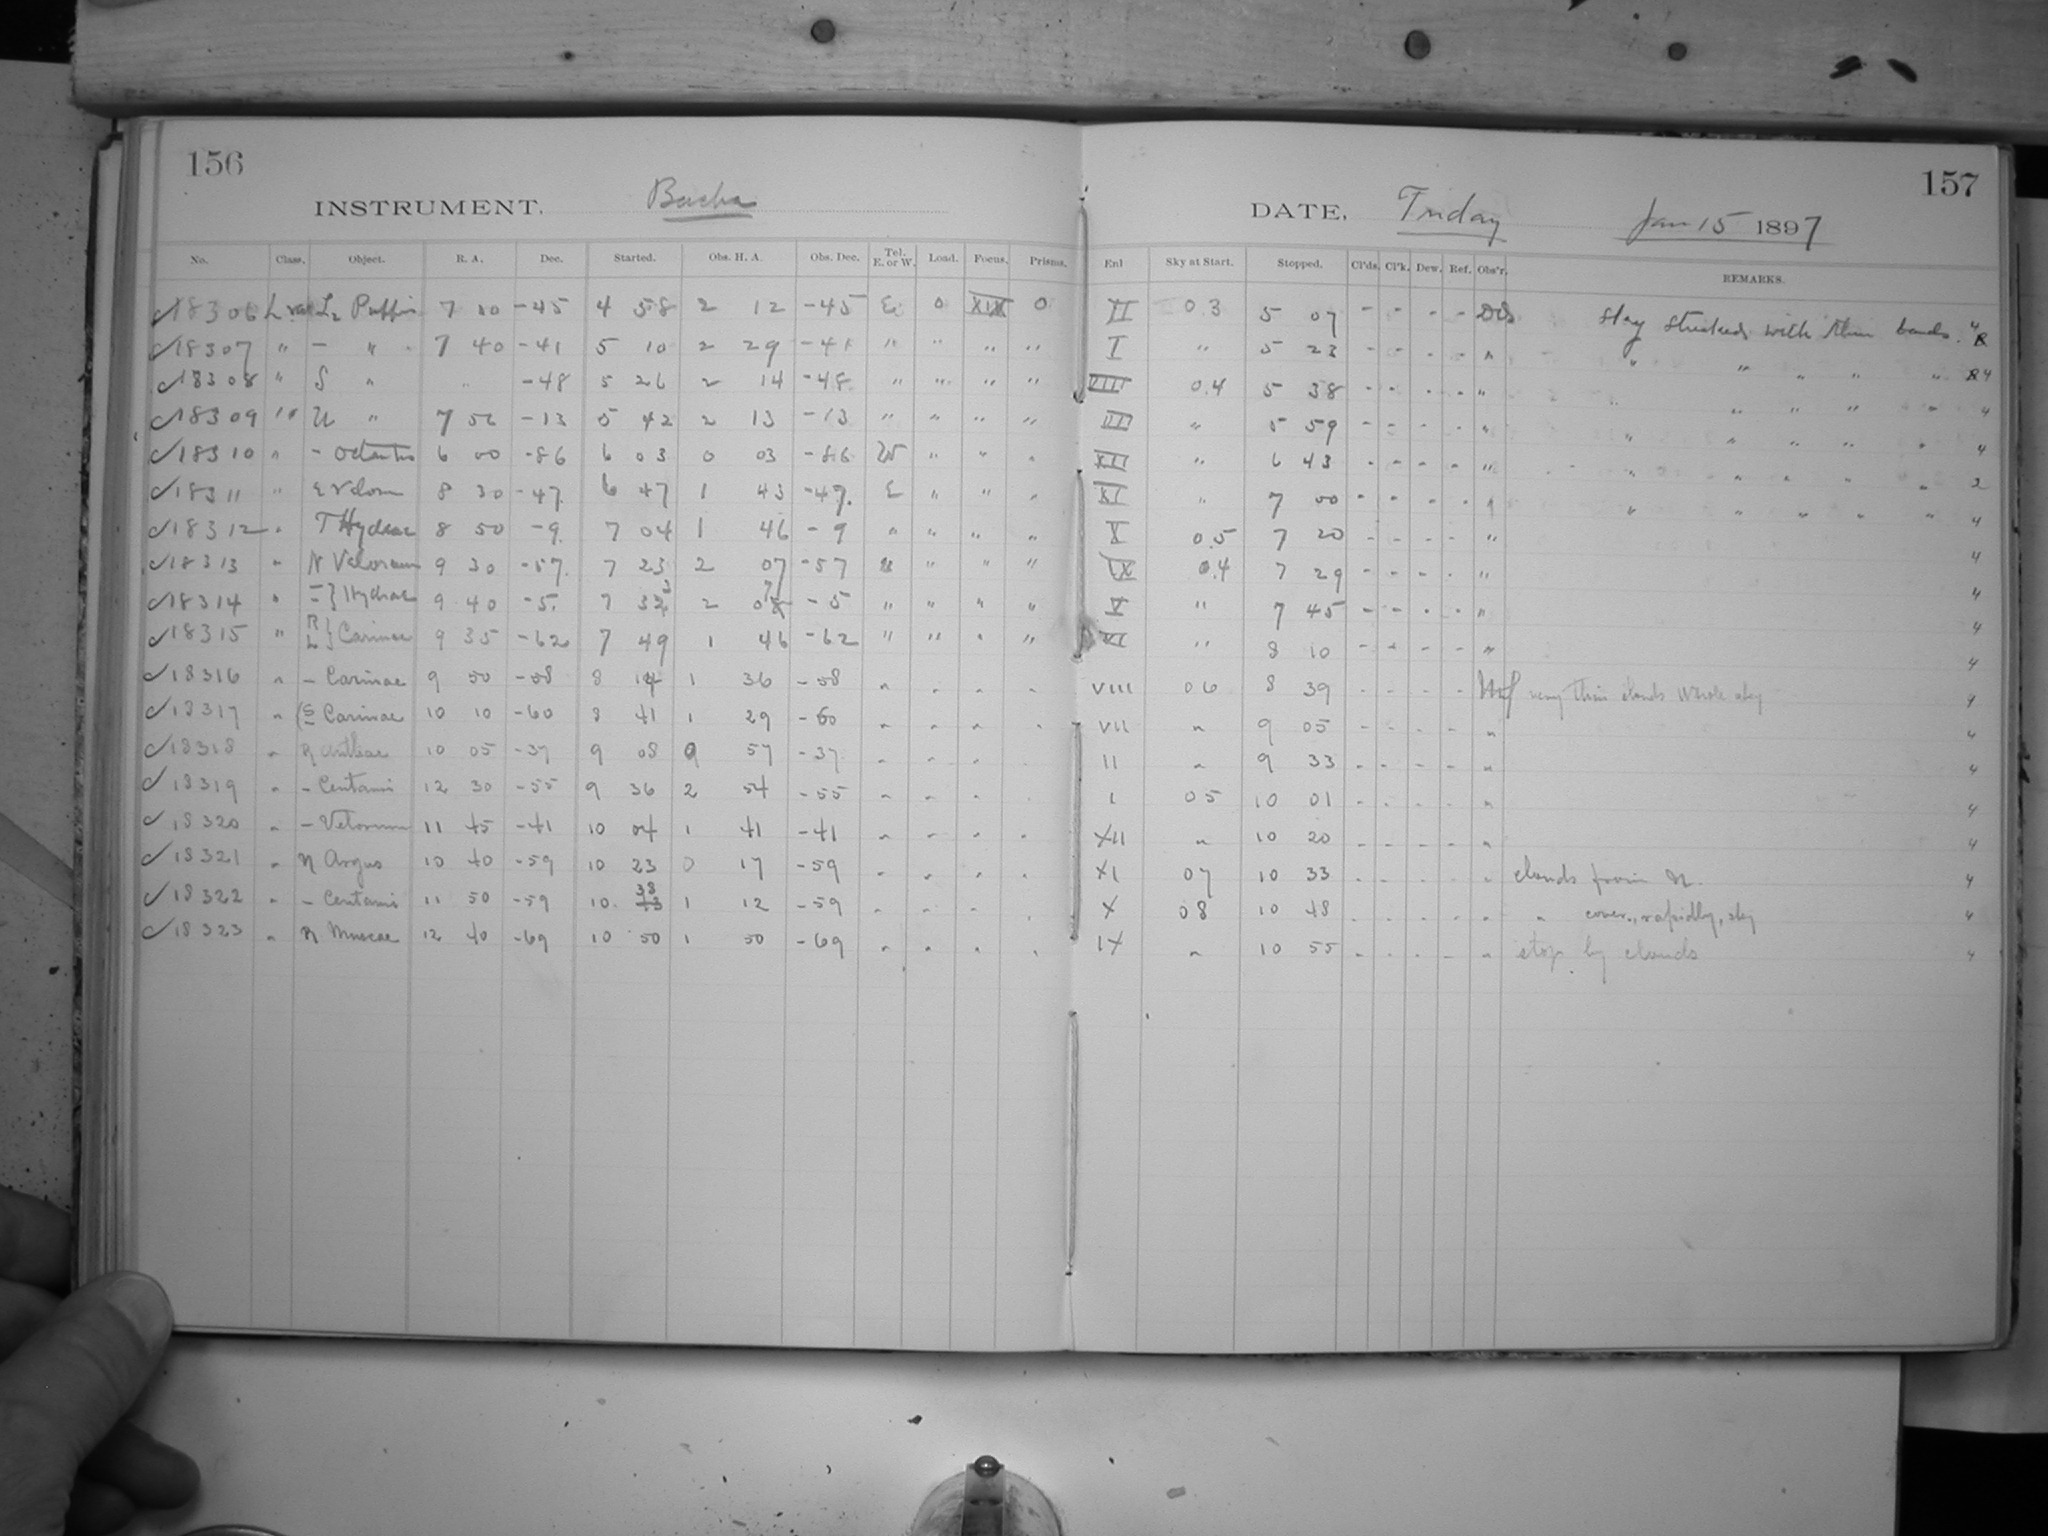 156
157
INSTRUMENT. Bache
DATE. Friday Jan 15 1897
No. Class. Object. R. A. Dec. Started. Obs. H. A. Obs. Dec. Tel. E. or W. Load. Focus. Prisms. Enl Sky at Start. Stopped. Cl'ds. Cl'k. Dew. Ref. Obs'r. REMARKS.
✓18306 L L2 Puppis 7 10 -45 4 58 2 12 -45 E 0 XIX 0 II 0.3 5 07 - - - - Sky streaked with thin bands. 4
✓18307 " - " 7 40 -41 5 10 2 29 -41 " " " " I " 5 23 - - - - " " " " " " 4
✓18308 " S " " -48 5 26 2 14 -48 " " " " VIII 0.4 5 38 - - - - " " " " " " 4
✓18309 " U " 7 56 -13 5 42 2 13 -13 " " " " III " 5 59 - - - - " " " " " " 4
✓18310 " - Octantis 6 00 -86 6 03 0 03 -86 W " " " XII " 6 43 - - - - " " " " " " 2
✓18311 " Velor 8 30 -47 6 47 1 43 -47 E " " " XI " 7 00 - - - - " " " " " " 4
✓18312 " T Hydrae 8 50 -9 7 04 1 46 -9 " " " " X 0.5 7 20 - - - - " 4
✓18313 " N Velorum 9 30 -57 7 23 2 07 -57 " " " " IX 0.4 7 29 - - - - " 4
✓18314 " - - } Hydrae 9 40 -5 7 33 2 07 -5 " " " " V " 7 45 - - - - " 4
✓18315 " R L } Carinae 9 35 -62 7 49 1 46 -62 " " " " VI " 8 10 - - - - " 4
✓18316 " - Carinae 9 50 -58 8 14 1 36 -58 " " " " VIII 06 8 39 - - - - very thin clouds whole sky 4
✓18317 " (S - Carinae 10 10 -60 8 41 1 29 -60 " " " " VII " 9 05 - - - - " 4
✓18318 " η Antliae 10 05 -37 9 08 0 57 -37 " " " " II " 9 33 - - - - " 4
✓18319 " - Centauri 12 30 -55 9 36 2 54 -55 " " " " I 05 10 01 - - - - " 4
✓18320 " - Velorum 11 45 -41 10 04 1 41 -41 " " " " XII " 10 20 - - - - " 4
✓18321 " η Argus 10 40 -59 10 23 0 17 -59 " " " " XI 07 10 33 - - - - " clouds from N. 4
✓18322 " - Centauri 11 50 -59 10 38 1 12 -59 " " " " X 08 10 48 - - - - " " cover., rapidly, sky 4
✓18323 " R Muscae 12 40 -69 10 50 1 50 -69 " " " " IX " 10 55 - - - - " stop by clouds 4